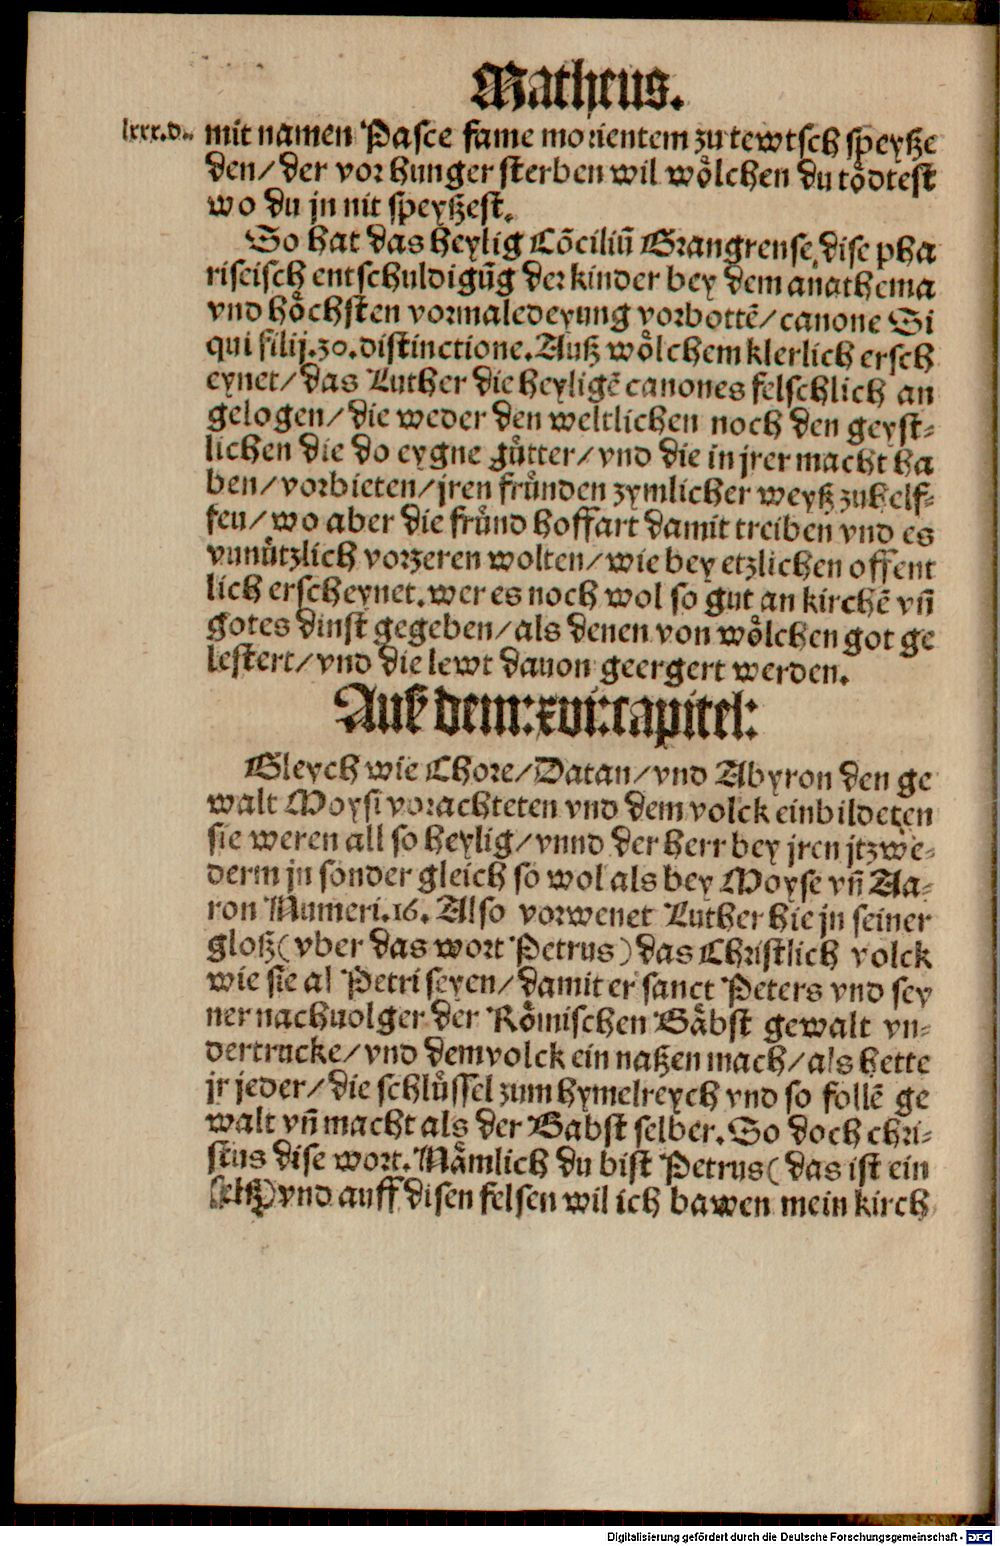 Matheus.
lxxx.d.
mit namen Pasce fame morientem zu tewtsch speyße
den/ der vor hunger sterben wil wölchen du tödtest
wo du jn nit speyßest.
So hat das heylig Cõciliũ Grangrense, dise pha
riseisch entschuldigũg der kinder bey dem anathema
vnd höchsten vormaledeyung vorbottẽ/ canone Si
qui filij.30.distinctione. Auß wölchem klerlich ersch
eynet/ das Luther die heyligẽ canones felschlich an
gelogen/ die weder den weltlichen noch den geyst⸗
lichen die do eygne gůtter/ vnd die in jrer macht ha
ben/ vorbieten/ jren frůnden zymlicher weyß zuhelf⸗
fen/ wo aber die frůnd hoffart damit treiben vnd es
vnnůtzlich vorzeren wolten/ wie bey etzlichen offent
lich erscheynet. wer es noch wol so gut an kirchẽ vñ
gotes dinst gegeben/ als denen von wölchen got ge
lestert/ vnd die lewt dauon geergert werden.
Auß dem:xvi:capitel:
Gleych wie Chore/ Datan/ vnd Abyron den ge
walt Moysi vorachteten vnd dem volck einbildeten
sie weren all so heylig/ vnnd der herr bey jren jtzwe⸗
derm jn sonder gleich so wol als bey Moyse vñ Aa⸗
ron Numeri.16. Also vorwenet Luther hie jn seiner
gloß (vber das wort Petrus) das Christlich volck
wie sie al Petri seyen/ damit er sanct Peters vnd sey
ner nachuolger der Römischen Bäbst gewalt vn⸗
dertrucke/ vnd dem volck ein naßen mach/ als hette
jr jeder/ die schlůssel zum hymelreych vnd so follẽ ge
walt vñ macht als der Babst selber. So doch chri⸗
stus dise wort. Nämlich du bist Petrus (das ist ein
felß) vnd auff disen felsen wil ich bawen mein kirch
Digitalisierung gefördert durch die Deutsche Forschungsgemeinschaft - DFG